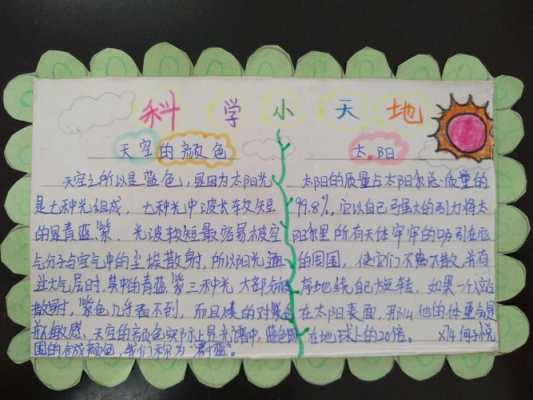 科学小天地
天空的颜色
天空之所以是蓝色，是因为太阳光
是七种光组成，七种光中波长较短
的是青蓝紫，光波较短最容易被空
气分子与空气中的尘埃散射，所以阳光
过大气层时，其中的青蓝紫三种光大部分被
散射，紫色几乎看不到，而且
敏感，天空的颜色实际上是光谱中，蓝色
国的合成颜色，我们称为"蔚蓝"。
太阳
太阳的质量占太阳系总质量的
99.8%，它以自己强大的引力将太
阳系里所有天体牢牢的吸引在
的周围，使它们不离不散，井有
序地绕自己旋转，如果一个
在太阳表面，那么他的体重是
在地球上的20倍。